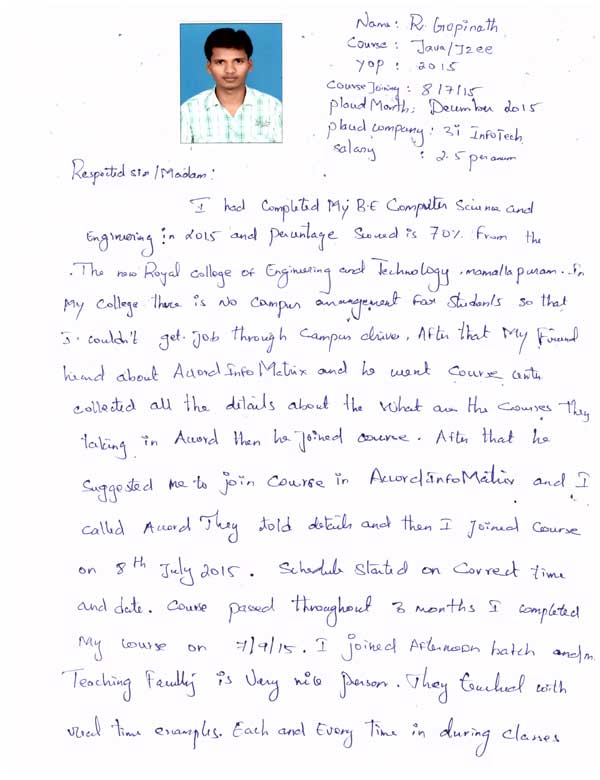 Name: R. Gopinath
Course: Java/J2ee
YOP : 2015
Course Joining: 8/7/15
placed Month: December 2015
placed company: 3i InfoTech
salary : 2.5 per annum
Respected sir/Madam:
I had completed My B.E Computer Science and
Engineering in 2015 and percentage Scored is 70% From the
The new Royal college of Engineering and Technology, mamallapuram. In
My College there is No campus arrangement for Students so that
I couldn't get job through Campus drives, After that My Friend
heard about Accord Info Matrix and he went Course
collected all the details about the What are the Courses They
taking in Accord then he joined course. After that he
suggested me to join Course in Accord InfoMatrix and I
called Accord They told details and then I Joined Course
on 8th July 2015. Schedule Started on Correct time
and date. Course passed throughout 3 months I completed
My course on 7/9/15. I joined Afternoon batch and m
Teaching Faculty is Very nice person. They teached with
real time examples. Each and Every Time in during classes